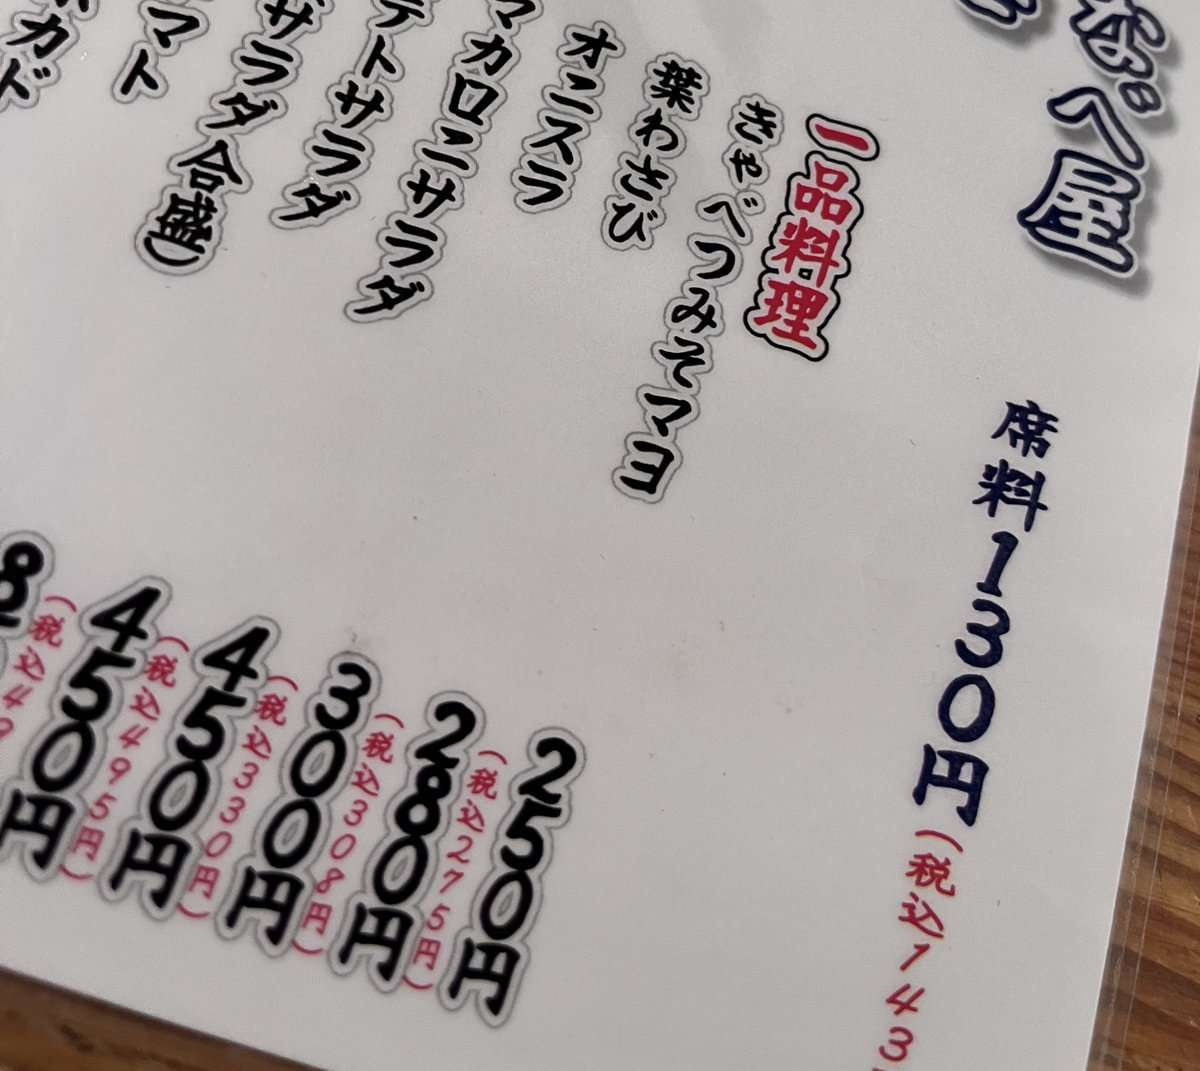 なべ屋
席料130円(税込143
一品料理
きゃべつみそマヨ
250円
(税込275円)
葉わさび
280円
(税込308円)
オニスラ
300円
(税込330円)
マカロニサラダ
450円
(税込495円)
テトサラダ
450円
(税込49
サラダ合盛)
マト
カド